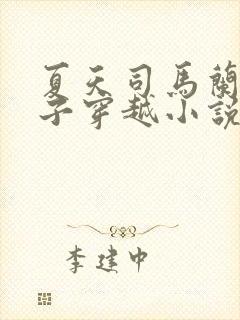 夏天司馬蘭
子穿越小說
李建中